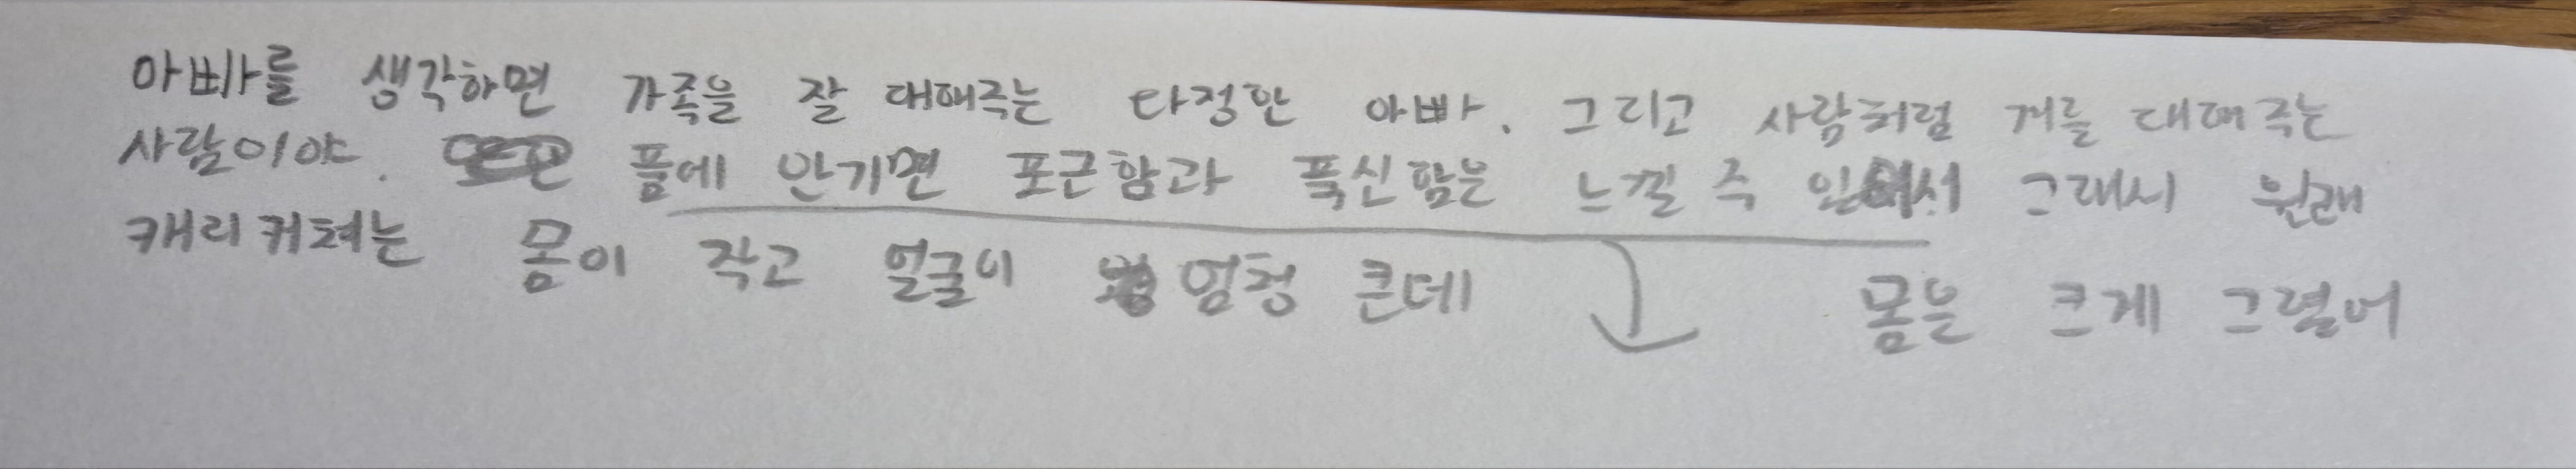 아빠를 생각하면 가족을 잘 대해주는 다정한 아빠. 그리고 사람처럼 개를 대해 주는
사람이야. 품에 안기면 포근함과 푹신함을 느낄 수 있어서 그래서 원래
캐리커쳐는 몸이 작고 얼굴이 엄청 큰데 몸을 크게 그렸어